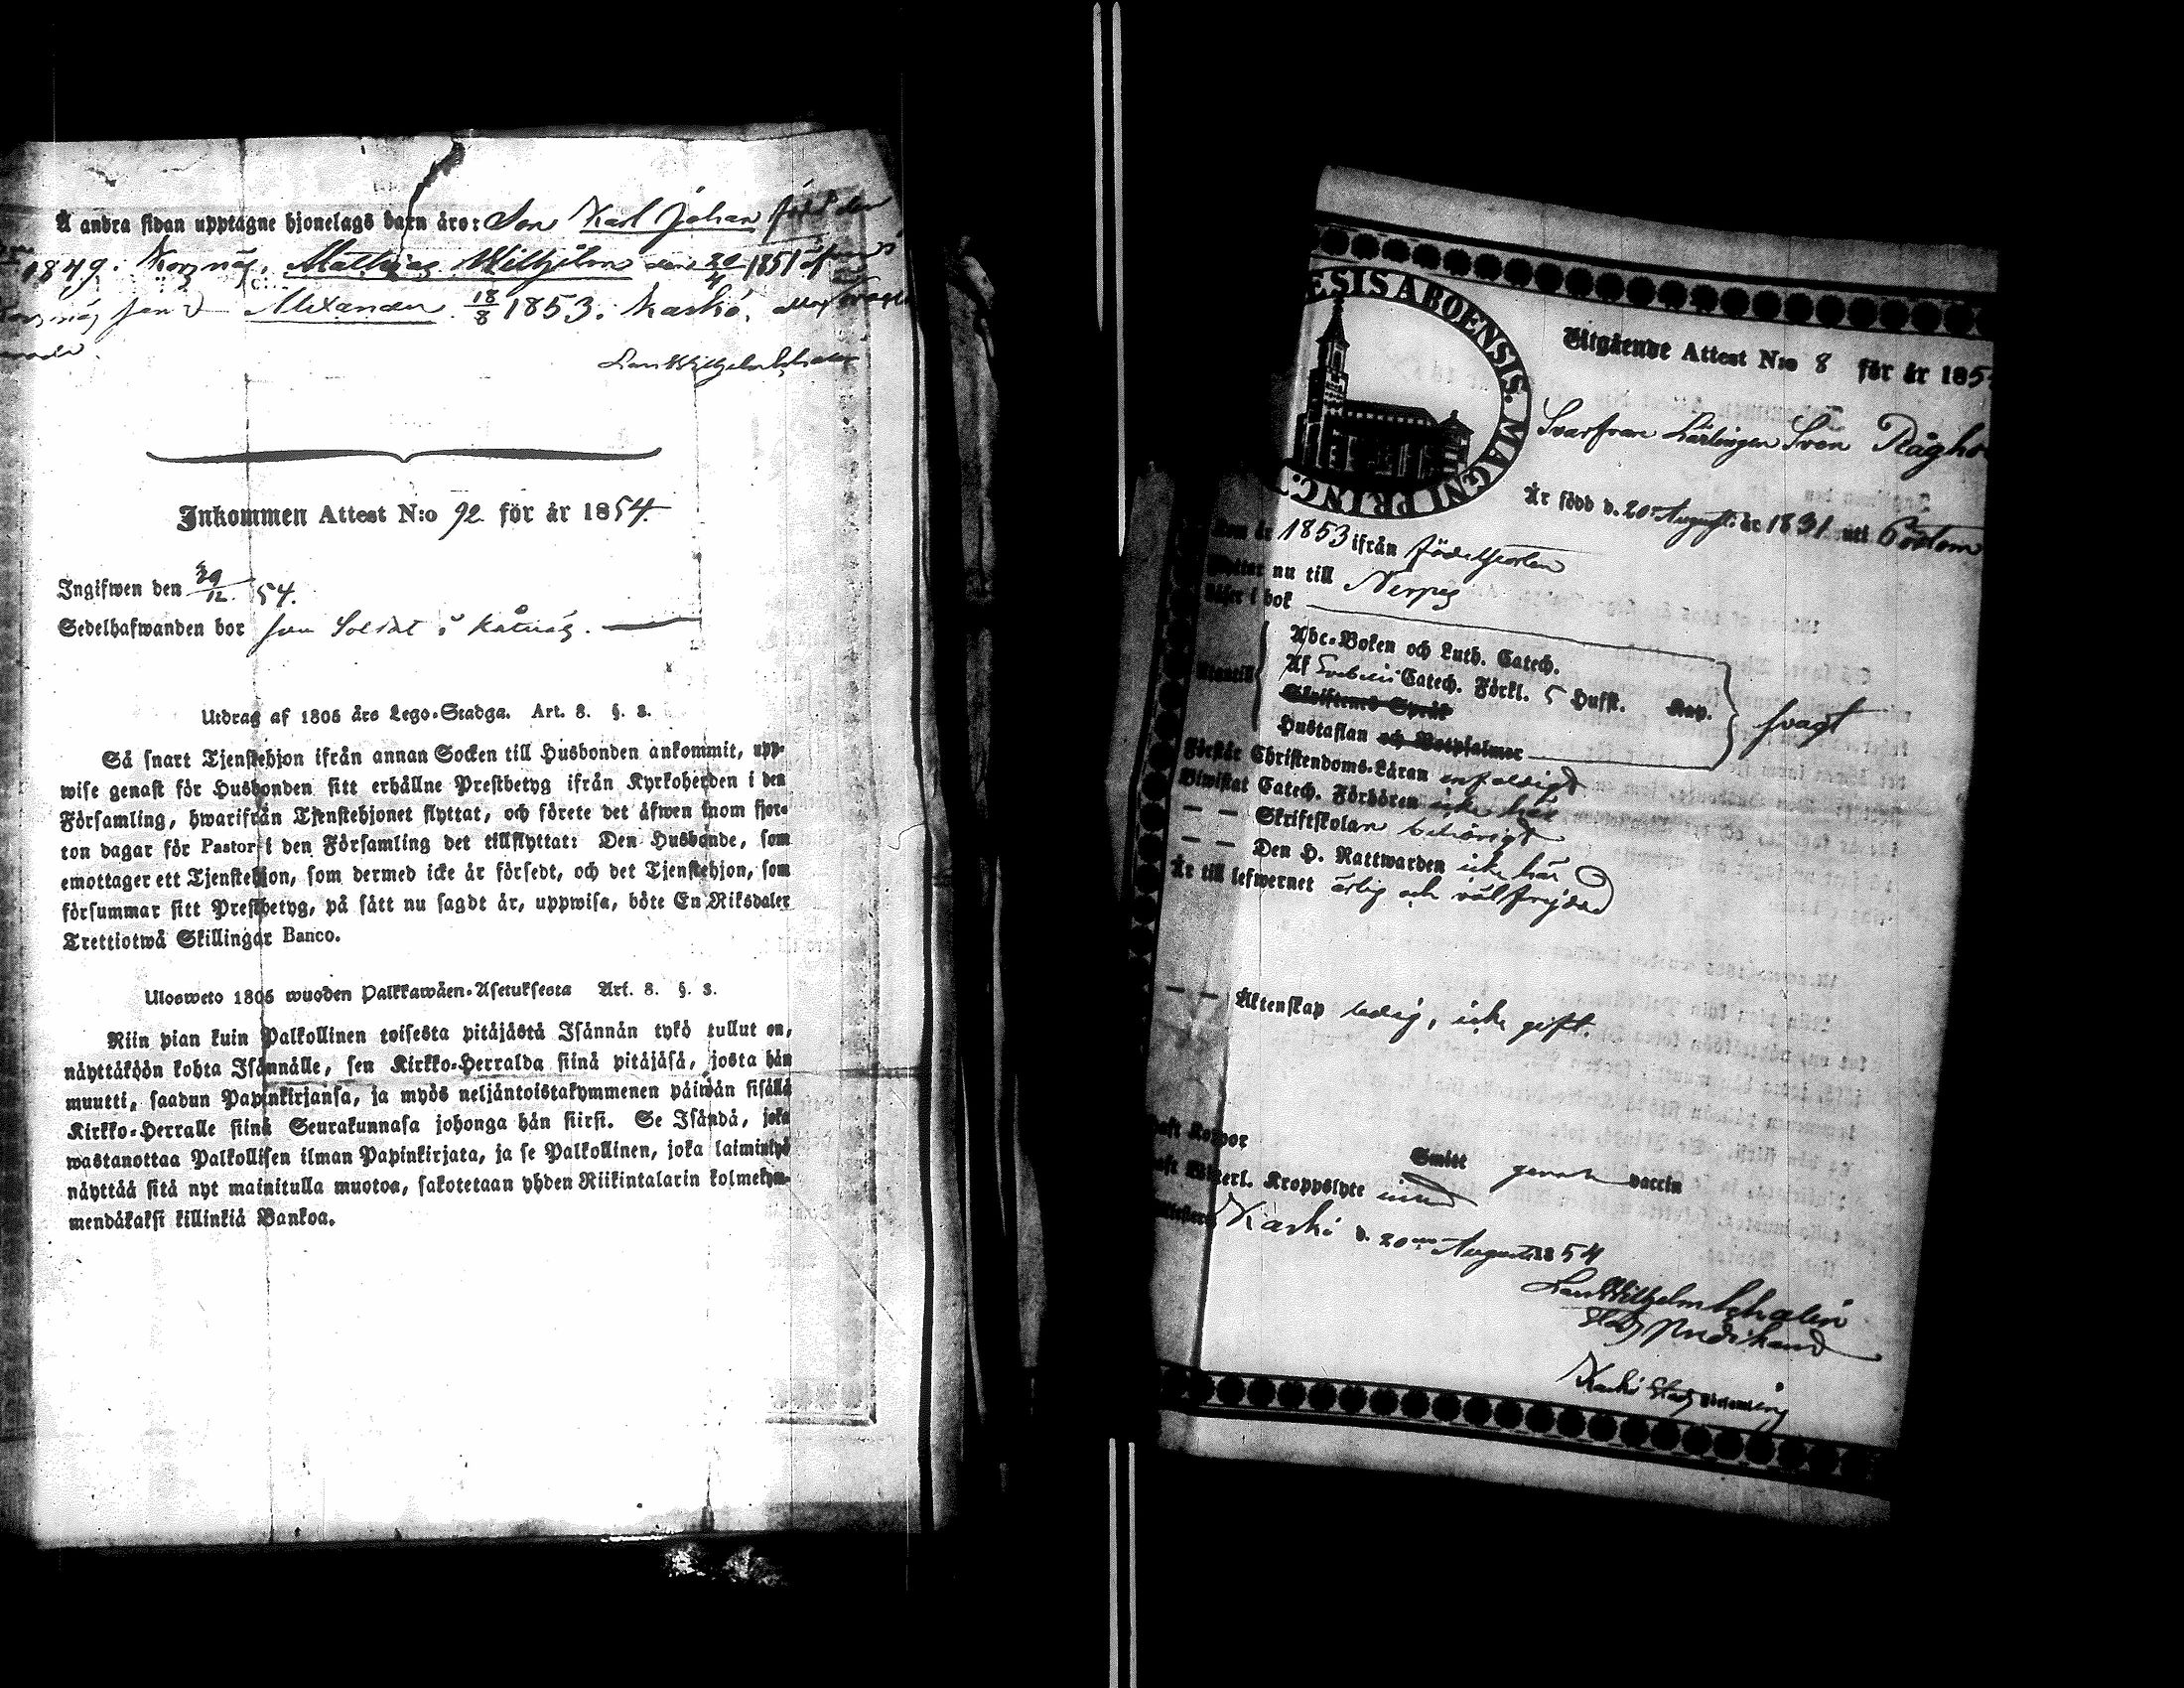 Å andra sidan upptagne hjonelags barn äro: Son Karl Johan född den
1849. Korsnäs. Mathias Wilhelm den 20/4 1851 äfven i
Korsnäs samt Alexander 18/8 1853. Kaskö.
Lars Wilhelm Schalin
Inkommen Attest N:o 92 för år 1854.
Ingifwen den 29/12 54.
Sedelhafwanden bor som Soldat i Kåtnäs.
Utdrag af 1805 års Lego-Stadga. Art. 8. §. 3.
Så snart Tjenstehjon ifrån annan Socken till Husbonden ankommit, upp-
wise genast för Husbonden sitt erhållne Prestbetyg ifrån Kyrkoherden i den
Församling, hwarifrån Tjenstehjonet flyttat, och förete det äfwen inom fjor-
ton dagar för Pastor i den Församling det tillflyttat: Den Husbonde, som
emottager ett Tjenstehjon, som dermed icke är försedt, och det Tjenstehjon, som
försummar sitt Prestbetyg, på sätt nu sagdt är, uppwisa, böte En Riksdaler
Trettiotwå Skillingar Banco.
Ulosweto 1805 wuoden Palkkawäen-Asetuksesta Art. 8. §. 3.
Niin pian kuin Palkollinen toisesta pitäjästä Isännän tykö tullut on,
näyttäköön kohta Isännälle, sen Kirkko-Herralda siinä pitäjäsä, josta hän
muutti, saadun Papinkirjansa, ja myös neljäntoistakymmenen päiwän sisällä
Kirkko-Herralle siinä Seurakunnasa johonga hän siirsi. Se Isändä, joka
wastanottaa Palkollisen ilman Papinkirjata, ja se Palkollinen, joka laiminlyö
näyttää sitä nyt mainitulla muotoa, sakotetaan yhden Riikintalarin kolmekym-
mendäkaksi killinkiä Bankoa.
ESIS ABOENSIS. MAGNI PRINC.
Utgående Attest N:o 8 för år 185
Svarfvare Lärlingen Sven Rågho
Är född d. 20 Augusti år 1831 uti Pörtom
Kom år 1853 ifrån födelseorten
Flyttar nu till Nerpes
Läser i bok
Abc-Boken och Luth. Catech.
Utantill Af Svebelii Catech. Förkl. 5 Hufst. Kap.
Skriftenes Språk
Hustaflan och Botpsalmer
svagt
Förstår Christendoms-Läran enfaldigt
Biwistat Catech. Förhören icke här
— — Skriftskolan behörigt
— — Den H. Nattwarden icke här
Är till lefwernet ärlig och välfrejdad
— — Äktenskap ledig, icke gift.
Haft Koppor
Smitt genom vaccin
Haft Witterl. Kroppslyte
Kaskö d. 20 Augusti 1854
Lars Wilhelm Schalin
Stads Predikand
Kaskö Stads Församling